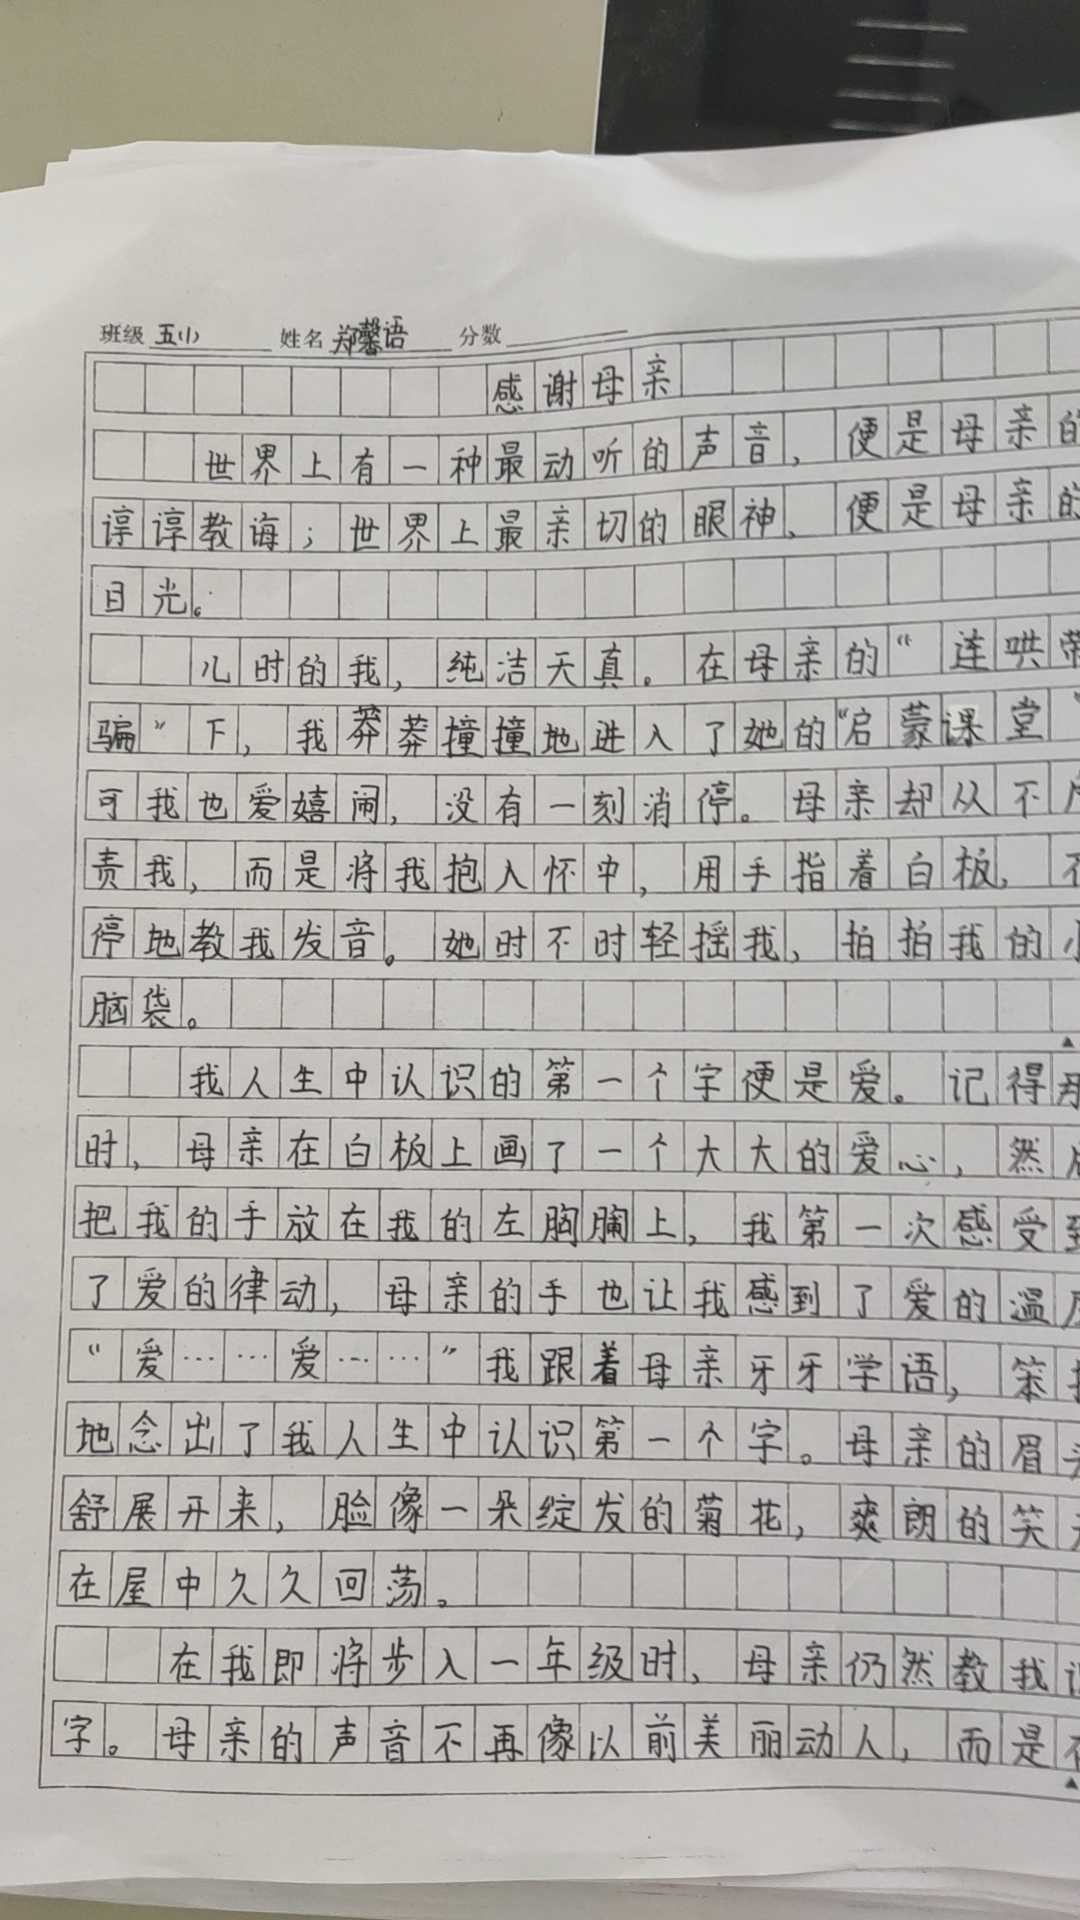 班级 五(1) 姓名 郑馨语 分数
感谢母亲
世界上有一种最动听的声音，便是母亲的
谆谆教诲；世界上最亲切的眼神，便是母亲的
目光。
儿时的我，纯洁天真。在母亲的“连哄带
骗”下，我莽莽撞撞地进入了她的“启蒙课堂”
可我也爱嬉闹，没有一刻消停。母亲却从不
责我，而是将我抱入怀中，用手指着白板，不
停地教我发音。她时不时轻摇我，拍拍我的小
脑袋。
我人生中认识的第一个字便是爱。记得那
时，母亲在白板上画了一个大大的爱心，然后
把我的手放在我的左胸脯上，我第一次感受到
了爱的律动，母亲的手也让我感到了爱的温度
“爱……爱……”我跟着母亲牙牙学语，笨拙
地念出了我人生中认识第一个字。母亲的眉头
舒展开来，脸像一朵绽发的菊花，爽朗的笑声
在屋中久久回荡。
在我即将步入一年级时，母亲仍然教我识
字。母亲的声音不再像以前美丽动人，而是有